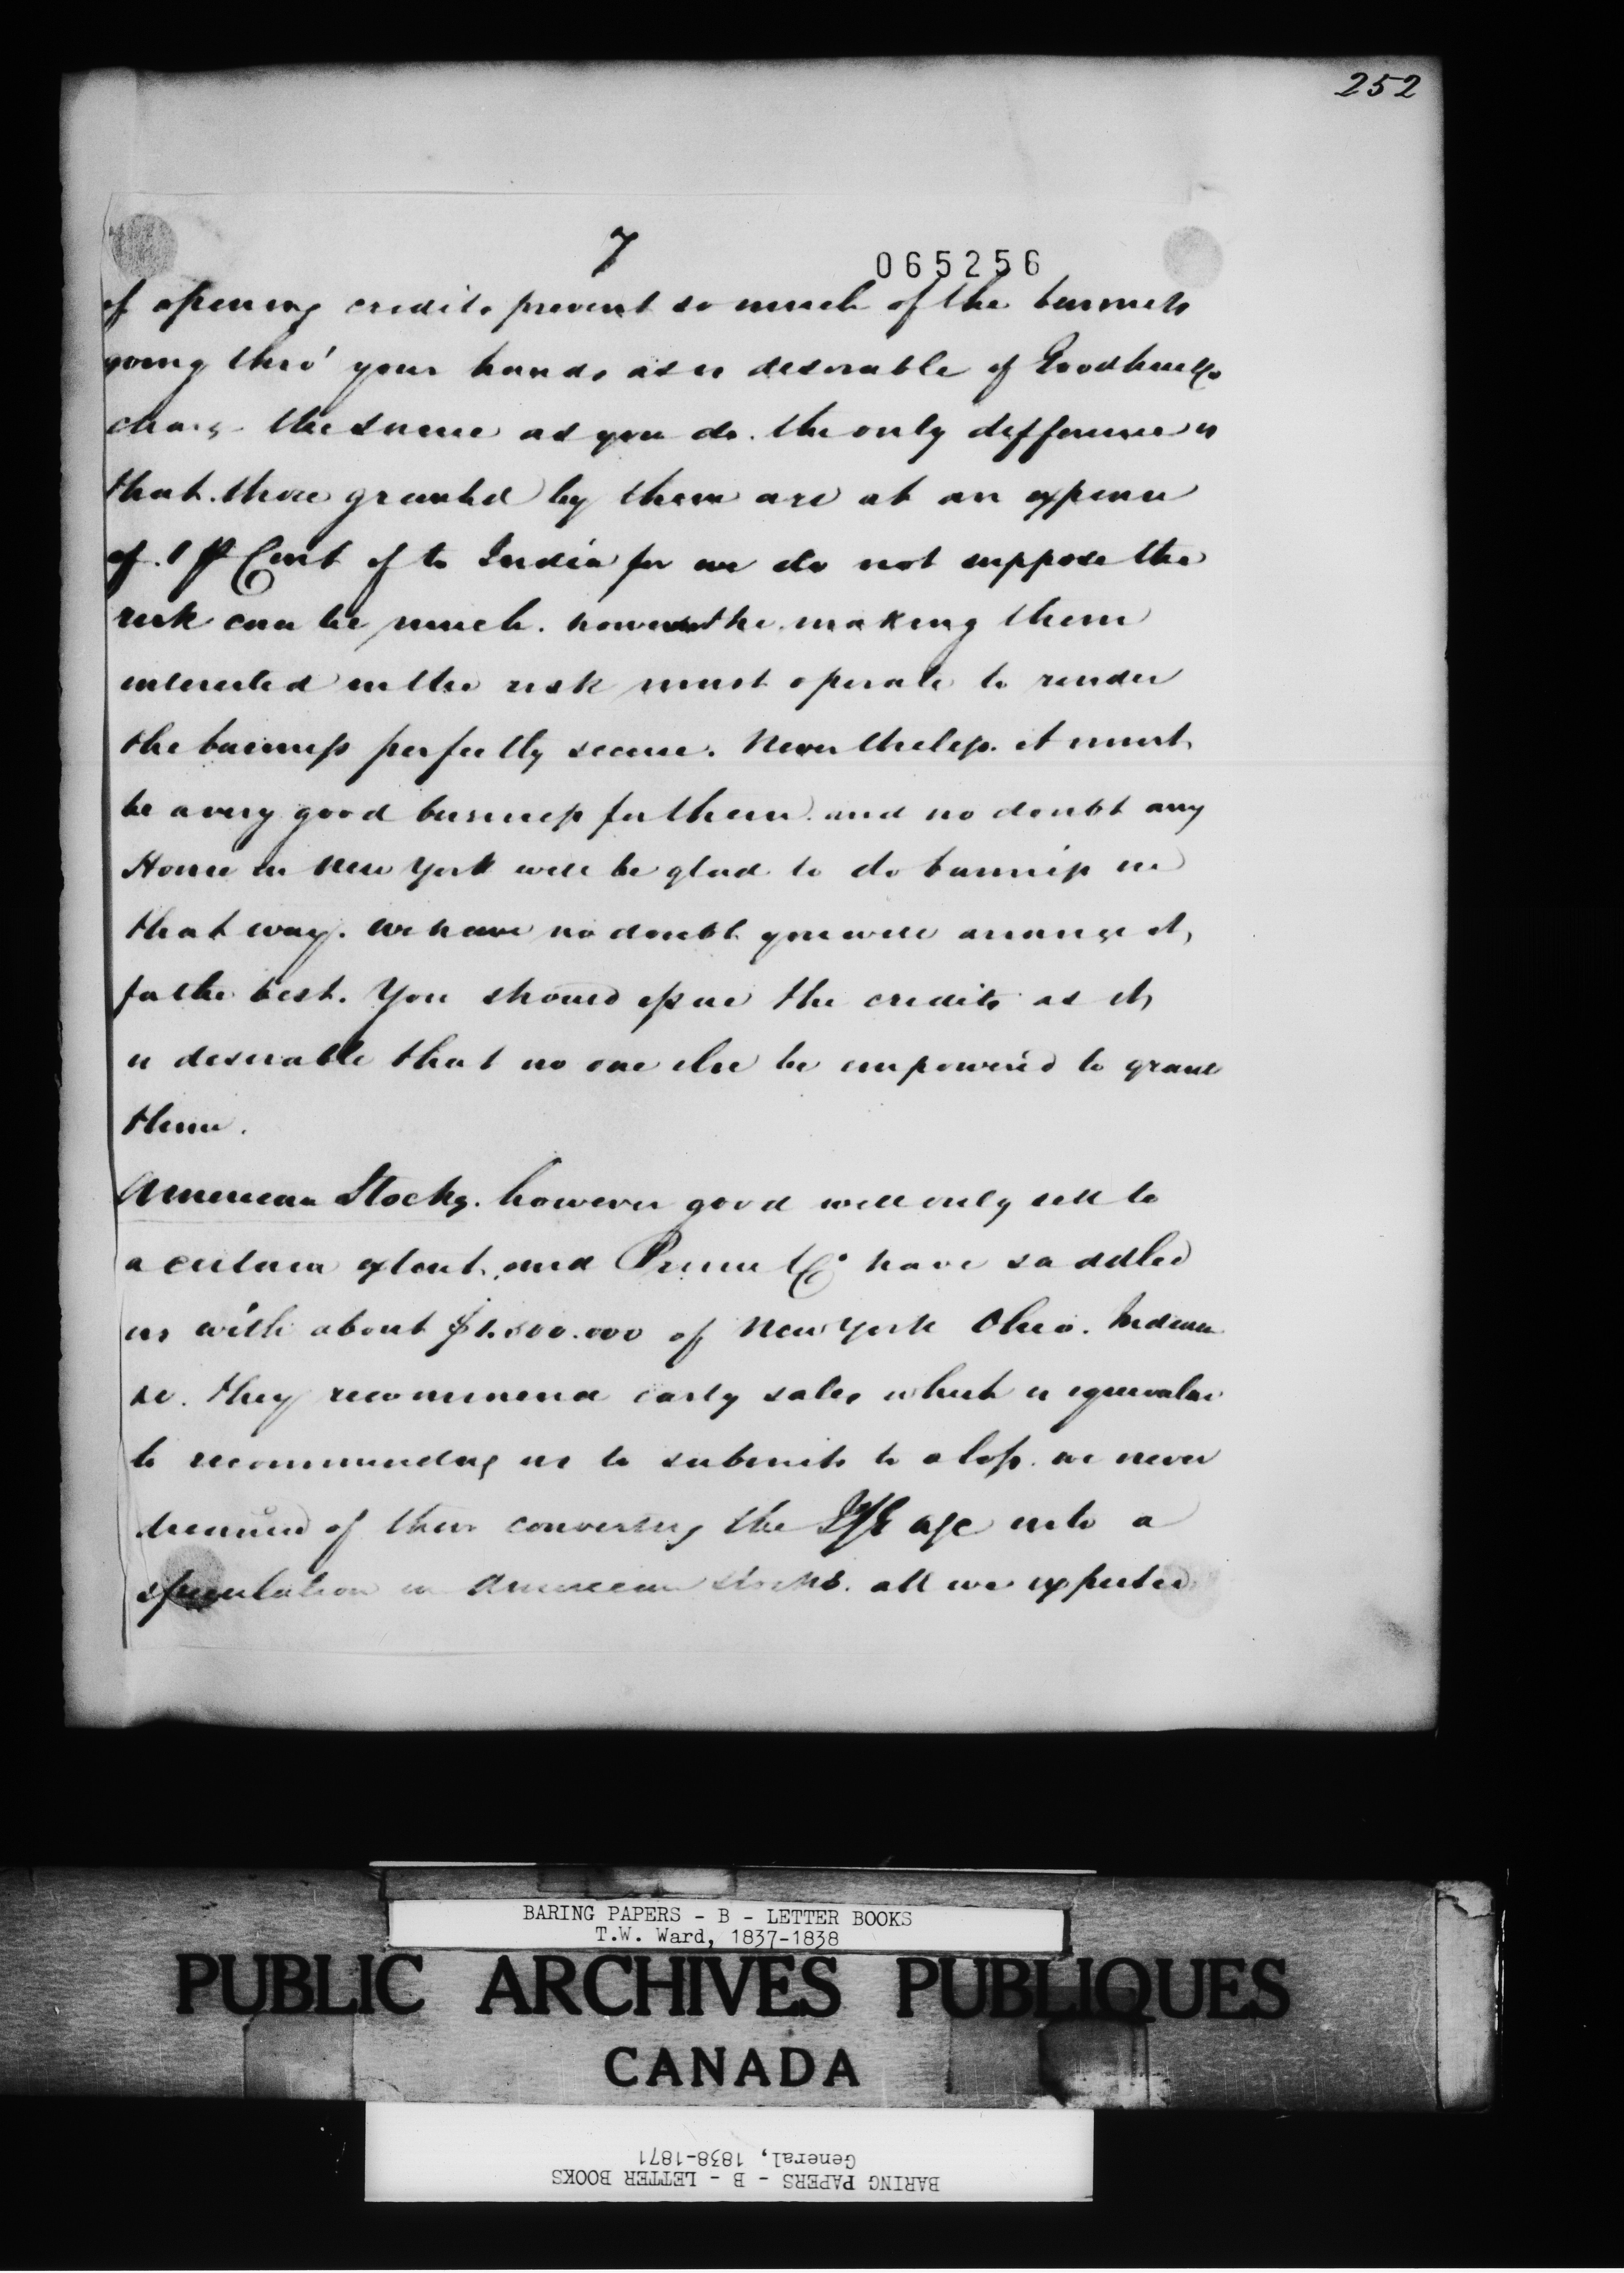 252
7
065256
of opening credits prevent so much of the business
going thro' your hands as is desirable if Goodhue & Co
charge the same as you do. the only difference is
that those granted by them are at an expense
of 1 P Cent if to India for we do not suppose the
risk can be much. however the making them
interested in the risk must operate to render
the business perfectly secure. Nevertheless it must
be a very good business for them and no doubt any
House in New York will be glad to do business in
that way. We have no doubt you will arrange it
for the best. You should issue the credits as it
is desirable that no one else be empowered to grant
them.
American Stocks. however good will only sell to
a certain extent, and Prime & Co have saddled
us with about $1.500.000 of New York Ohio. Indiana
&c. they recommend early sales which is equivalent
to recommending us to submit to a loss. we never
dreamed of their converting the a/c into a
speculation in American stocks. all we expected
BARING PAPERS - B - LETTER BOOKS
T.W. Ward, 1837-1838
PUBLIC ARCHIVES PUBLIQUES
CANADA
BARING PAPERS - B - LETTER BOOKS
General, 1838-1871